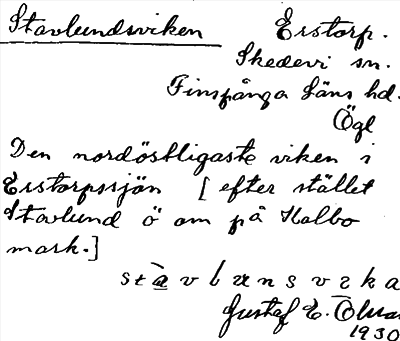 Stavlundsviken Erstorp.
Skedevi sn.
Finspånga läns hd.
Ögl
Den nordöstligaste viken i
Erstorpssjön [ efter stället
Stavlund ö om på Halbo
mark.]
Gustaf E.
1930